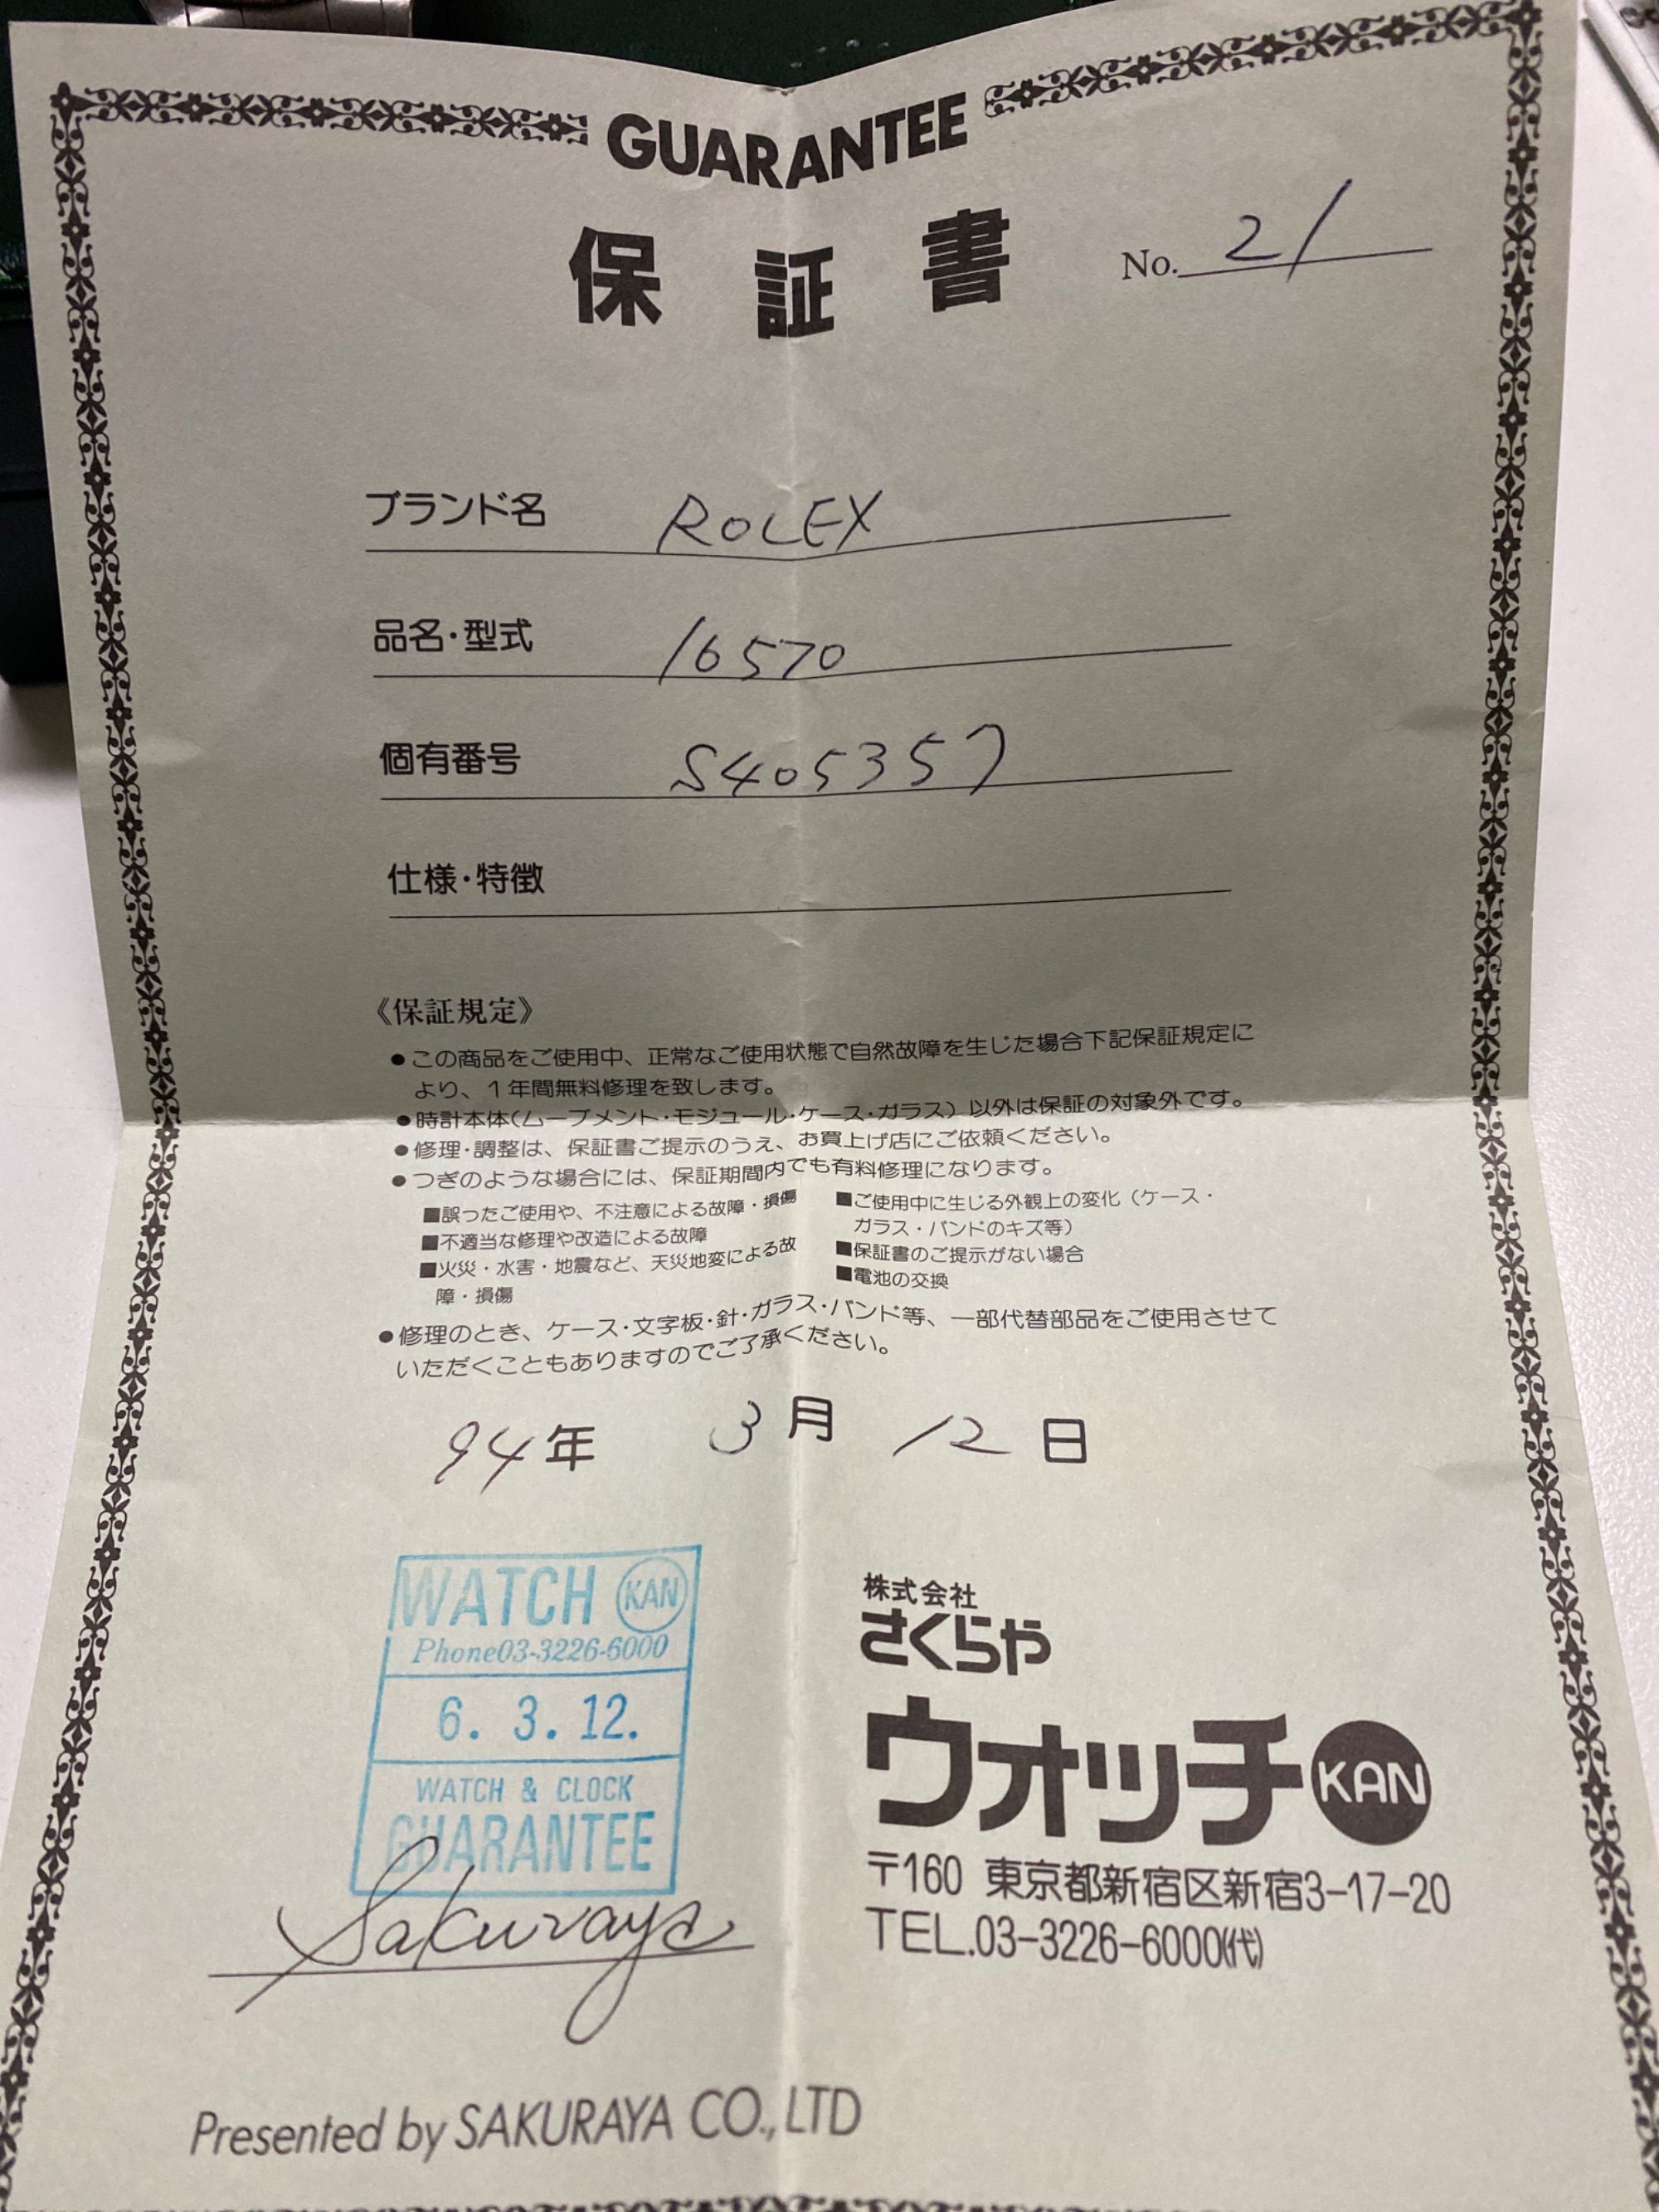 GUARANTEE
保証書
No. 21
ブランド名 ROLEX
品名・型式 16570
個有番号 S405357
仕様・特徴
《保証規定》
●この商品をご使用中、正常なご使用状態で自然故障を生じた場合下記保証規定に
より、1年間無料修理を致します。
●時計本体(ムーブメント・モジュール・ケース・ガラス)以外は保証の対象外です。
●修理・調整は、保証書ご提示のうえ、お買上げ店にご依頼ください。
●つぎのような場合には、保証期間内でも有料修理になります。
■誤ったご使用や、不注意による故障・損傷
■不適当な修理や改造による故障
■火災・水害・地震など、天災地変による故
障・損傷
■ご使用中に生じる外観上の変化(ケース・
ガラス・バンドのキズ等)
■保証書のご提示がない場合
■電池の交換
●修理のとき、ケース・文字板・針・ガラス・バンド等、一部代替部品をご使用させて
いただくこともありますのでご了承ください。
94年 3月 12日
WATCH KAN
Phone03-3226-6000
6. 3. 12.
WATCH & CLOCK
GUARANTEE
Sakuraya
株式会社
さくらや
ウォッチKAN
〒160 東京都新宿区新宿3-17-20
TEL.03-3226-6000(代)
Presented by SAKURAYA CO., LTD